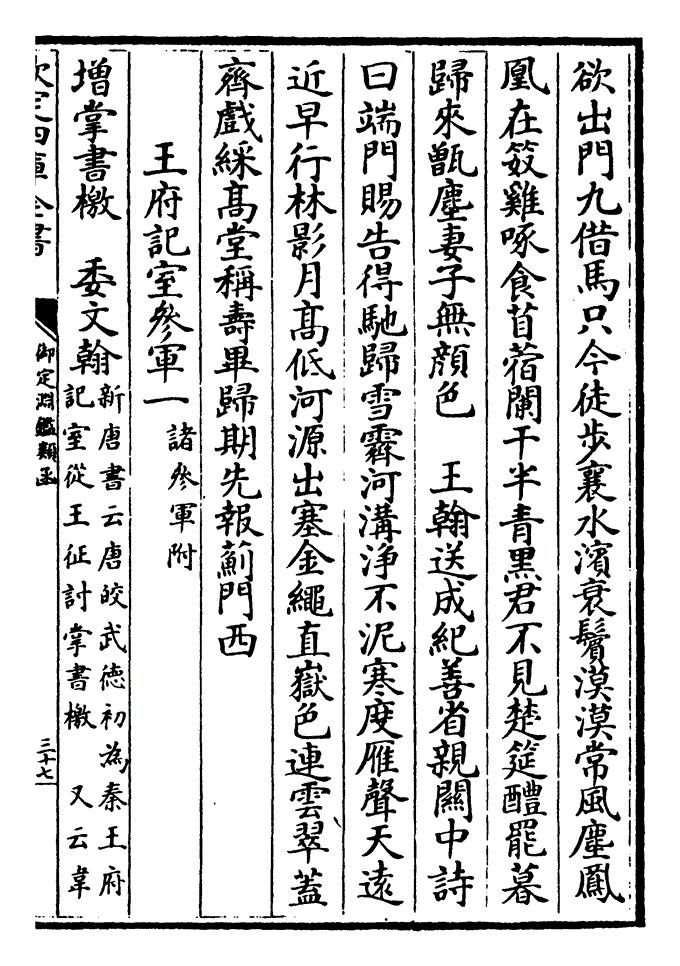 欲出門九借馬只今徒步襄水濱衰鬢漠漠常風塵鳳
凰在笯雞啄食苜蓿闌干半青黑君不見楚筵醴罷暮
歸來甑塵妻子無顔色　王翰送成紀善省親關中詩
曰端門賜告得馳歸雪霽河溝浄不泥寒度雁聲天遠
近早行林影月髙低河源出塞金繩直嶽色連雲翠蓋
齊戲綵髙堂稱壽畢歸期先報薊門西
王府記室參軍一諸參軍附
增掌書檄　委文翰新唐書云唐皎武德初為秦王府
記室從王征討掌書檄　又云韋
欽定四庫全書
御定淵鑑類函
三十七